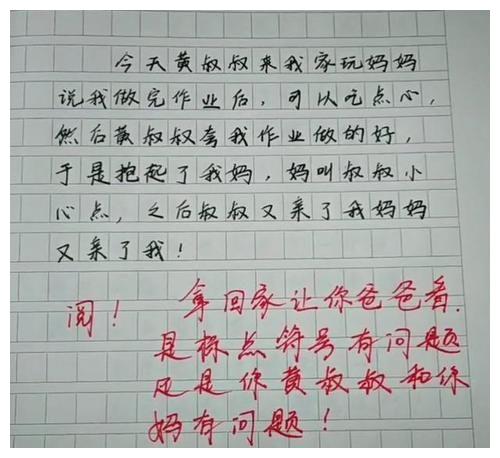 今天黄叔叔来我家玩妈妈
说我做完作业后，可以吃点心，
然后黄叔叔夸我作业做的好，
于是抱起了我妈，妈叫叔叔小
心点，之后叔叔又亲了我妈妈
又亲了我！
阅！ 拿回家让你爸爸看.
是标点符号有问题
还是你黄叔叔和你
妈有问题！